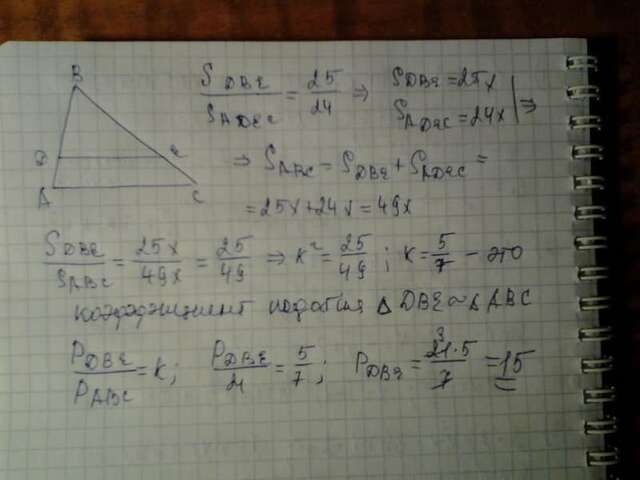 B
D
E
A
C
S_DBE / S_ADEC = 25/24 ⇒ S_DBE = 25x
S_ADEC = 24x | ⇒
⇒ S_ABC = S_DBE + S_ADEC =
= 25x + 24x = 49x
S_DBE / S_ABC = 25x/49x = 25/49 ⇒ K² = 25/49 ; K = 5/7 – это
коэффициент подобия Δ DBE ~ Δ ABC
P_DBE / P_ABC = K ; P_DBE / 21 = 5/7 ; P_DBE = 21·5/7 = 15
3